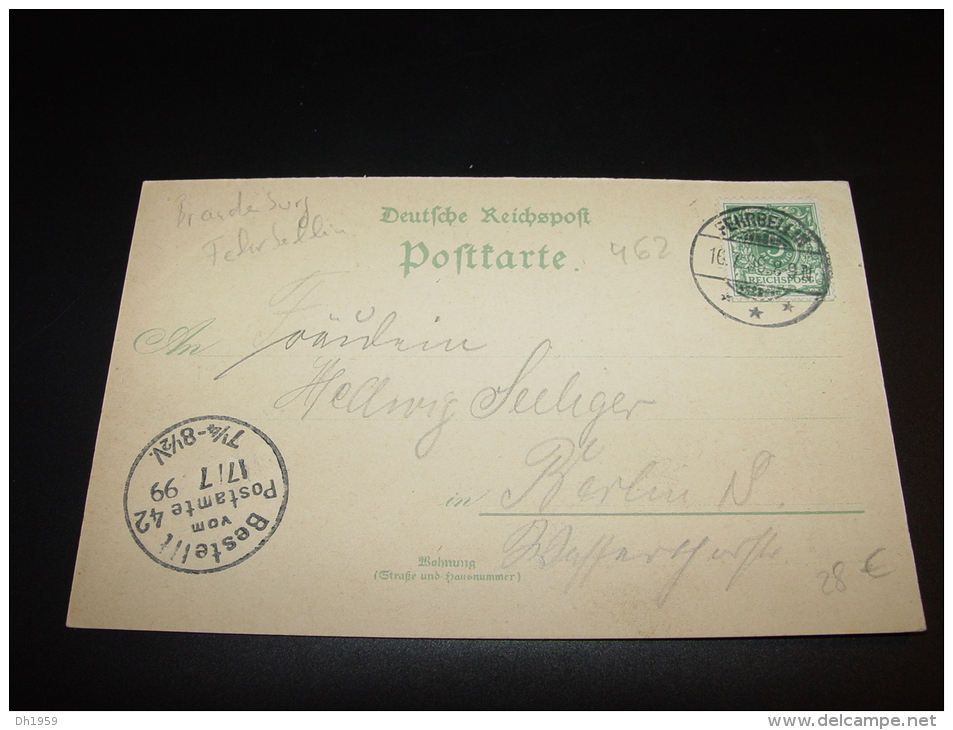 Brandeburg
Fehrbellin
Deutsche Reichspost
Postkarte.
462
FEHRBELLIN
16.7.
8-9N
REICHSPOST
An Fräulein
Hellwig Seeliger
in Berlin S.
Wohnung
(Straße und Hausnummer)
28 €
Bestellt
vom
Postamte 42
17/7 99
7¼-8½V.
Dh1959
www.delcampe.net